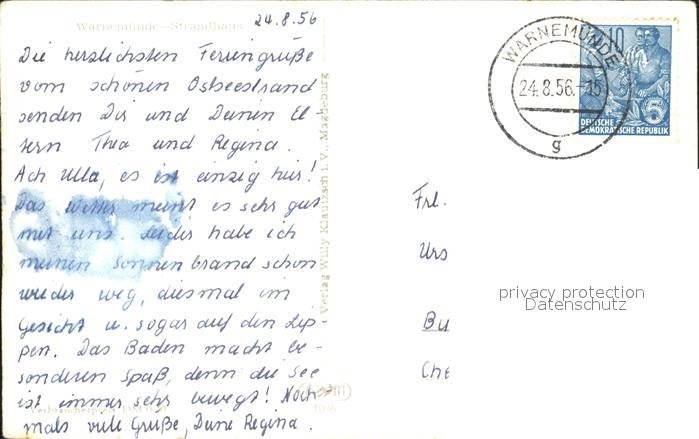 Warnemünde—Strandhaus
24.8.56
Die herzlichsten Feriengrüße
vom schönen Ostseestrand
senden Dir und Deinen El-
tern Thea und Regina.
Ach Ulla, es ist einzig hier!
Das Wetter meint es sehr gut
mit uns. Leider habe ich
meinen Sonnenbrand schon
wieder weg, diesmal im
Gesicht u. sogar auf den Lip-
pen. Das Baden macht be-
sonderen Spaß, denn die See
ist immer sehr bewegt! Noch-
mals viele Grüße, Deine Regina.
Verbraucherpreis DM 0,20
Verlag Willy Klautzsch i. V., Magdeburg
WARNEMÜNDE
24.8.56.-15
g
10
5
DEUTSCHE
DEMOKRATISCHE REPUBLIK
Frl.
Urs
privacy protection
Datenschutz
Bu
Che